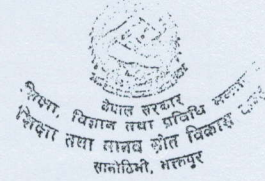 नेपाल सरकार
शिक्षा, विज्ञान तथा प्रविधि
शिक्षा तथा मानव स्रोत विकास केन्द्र
सानोठिमी, भक्तपुर